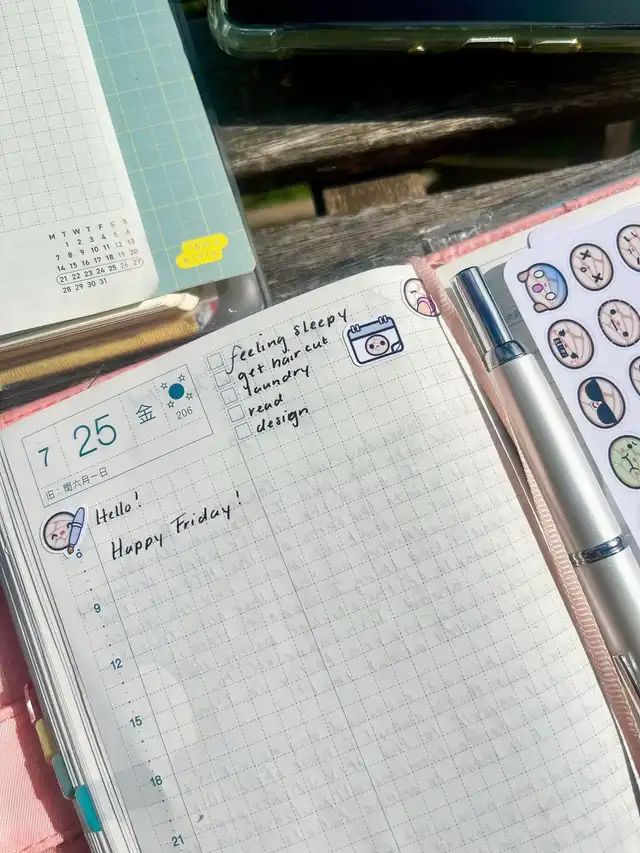 M T W T F S S
1 2 3 4 5 6
7 8 9 10 11 12 13
14 15 16 17 18 19 20
21 22 23 24 25 26 27
28 29 30 31
feeling sleepy
get haircut
laundry
read
design
7 25 金
206
旧：閏六月一日
Hello!
Happy Friday!
6
9
12
15
18
21